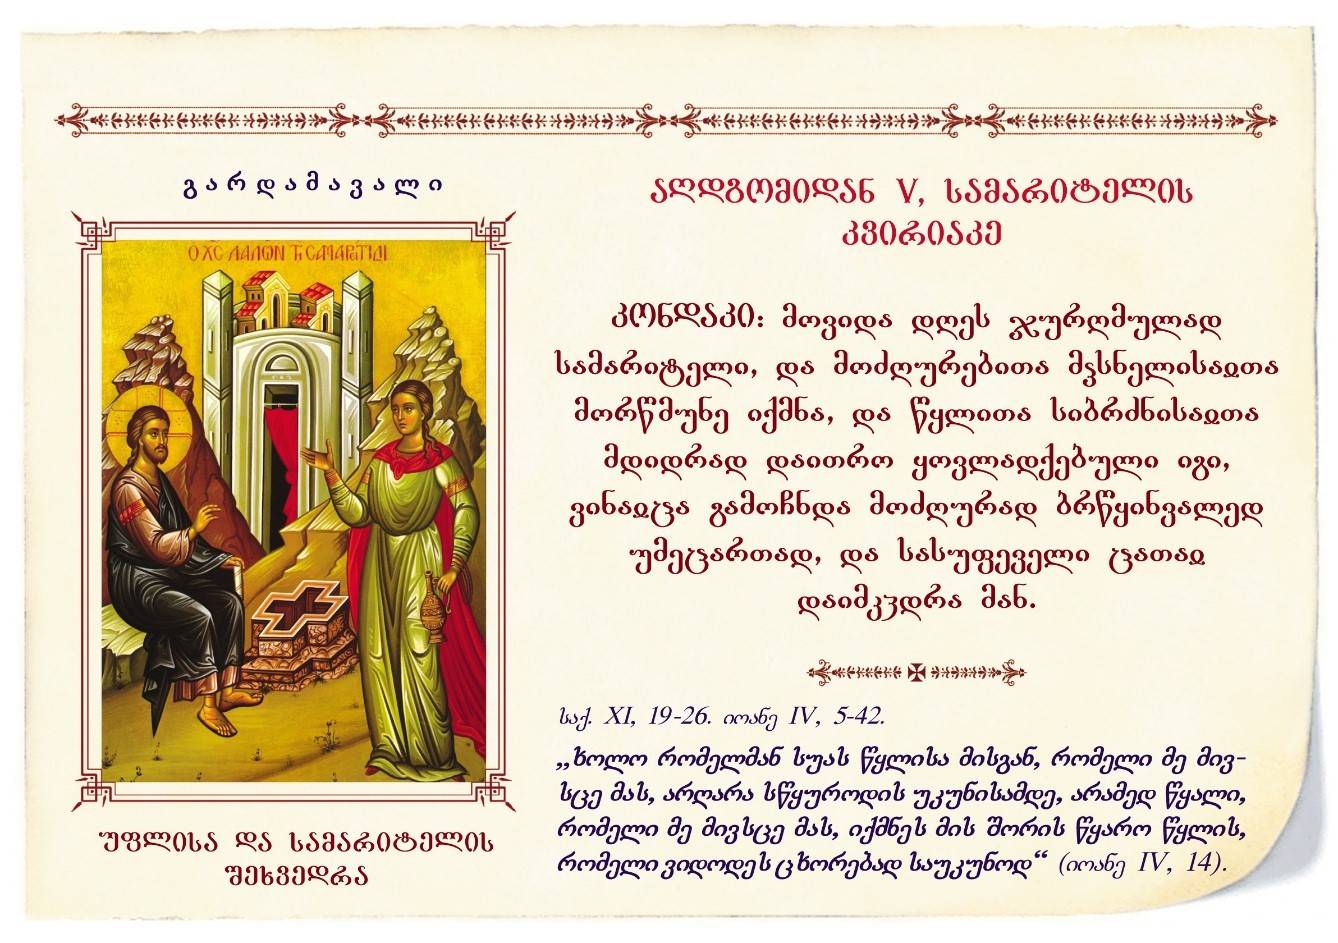 გარდამავალი
Ο ΧC ΛΑΛῶΝ
აღდგომიდან V, სამარიტელის
კვირიაკე
კონდაკი: მოვიდა დღეს ჯურღმულად
სამარიტელი, და მოძღურებითა მჴსნელისაჲთა
მორწმუნე იქმნა, და წყლითა სიბრძნისაჲთა
მდიდრად დაითრო ყოვლადქებული იგი,
ვინაჲცა გამოჩნდა მოძღურად ბრწყინვალედ
უმეცართად, და სასუფეველი ცათაჲ
დაიმკჳდრა მან.
საქ. XI, 19-26. იოანე IV, 5-42.
„ხოლო რომელმან სუას წყლისა მისგან, რომელი მე მივ-
სცე მას, არღარა სწყუროდის უკუნისამდე, არამედ წყალი,
რომელი მე მივსცე მას, იქმნეს მის შორის წყარო წყლის,
რომელი ვიდოდეს ცხორებად საუკუნოდ“ (იოანე IV, 14).
უფლისა და სამარიტელის
შეხვედრა